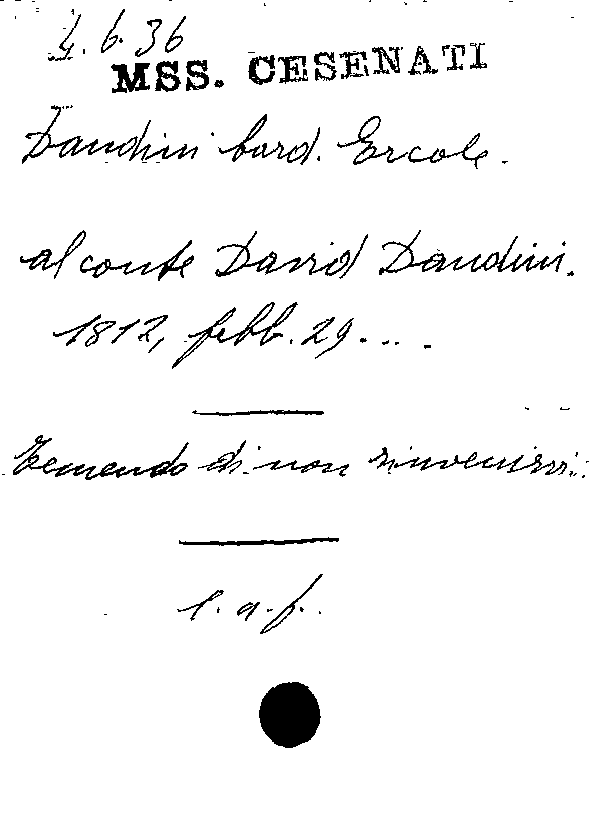 4. 6. 36
MSS. CESENATI
Dandini card. Ercole.
al conte David Dandini.
1812, febb. 29....
Temendo di non rinvenirvi..
l. a. f.